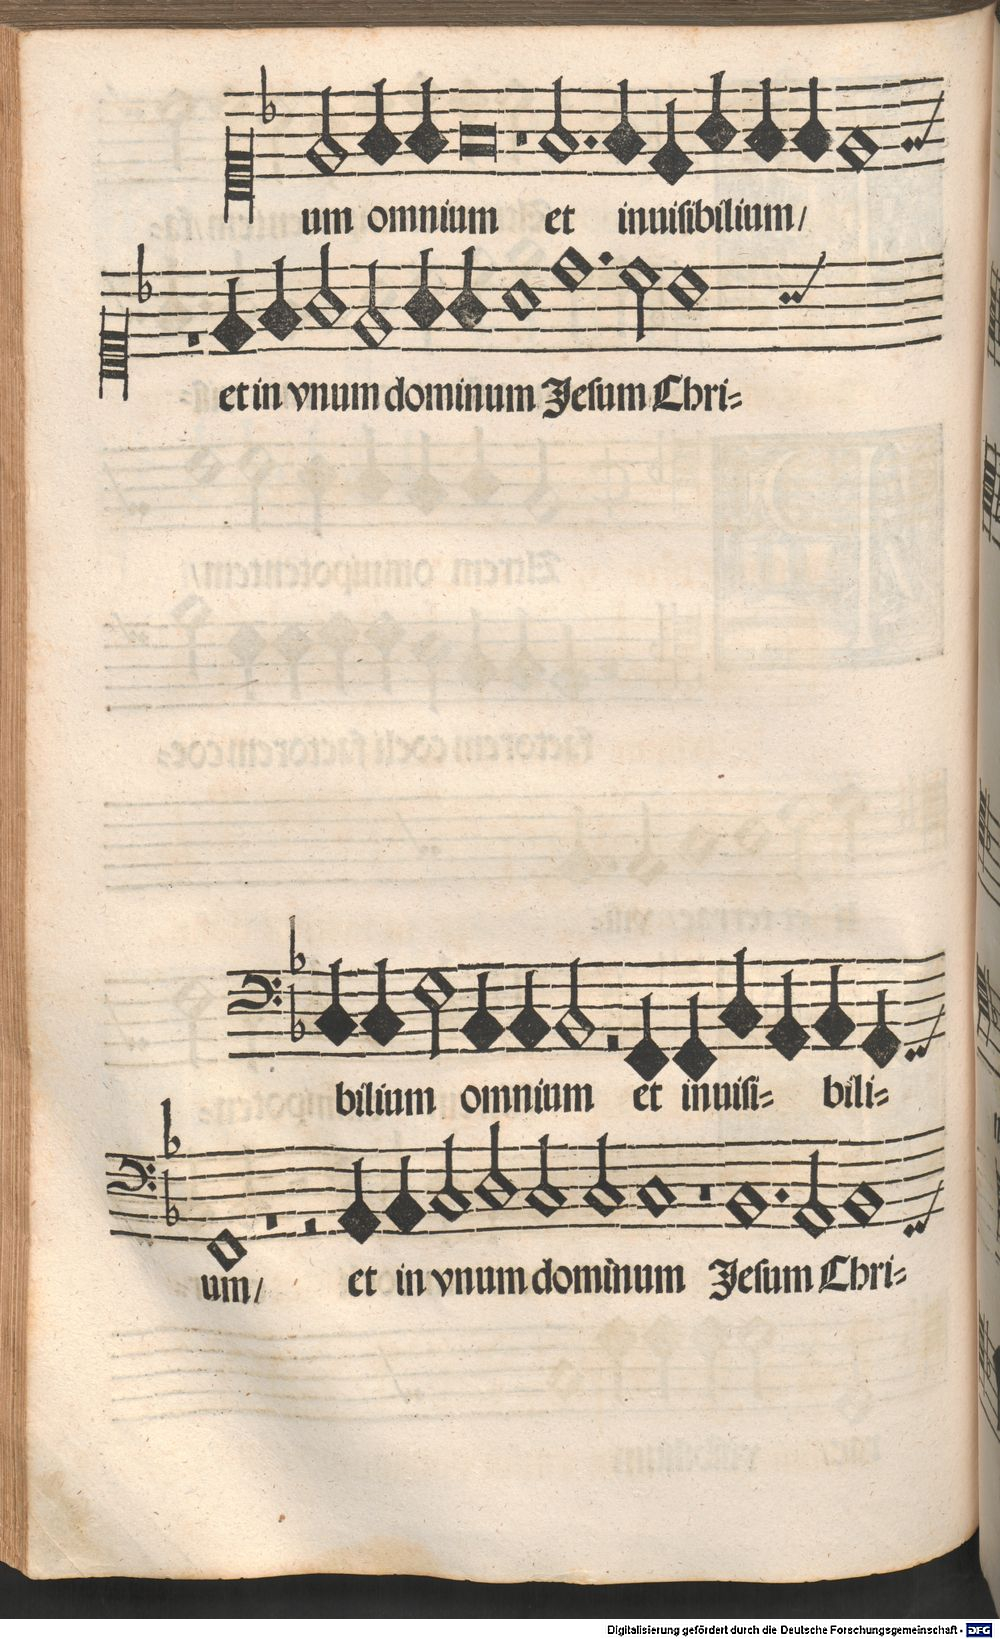 um omnium et inuisibilium/
et in vnum dominum Jesum Chri=
bilium omnium et inuisi= bili=
um/ et in vnum dominum Jesum Chri=
Digitalisierung gefördert durch die Deutsche Forschungsgemeinschaft - DFG